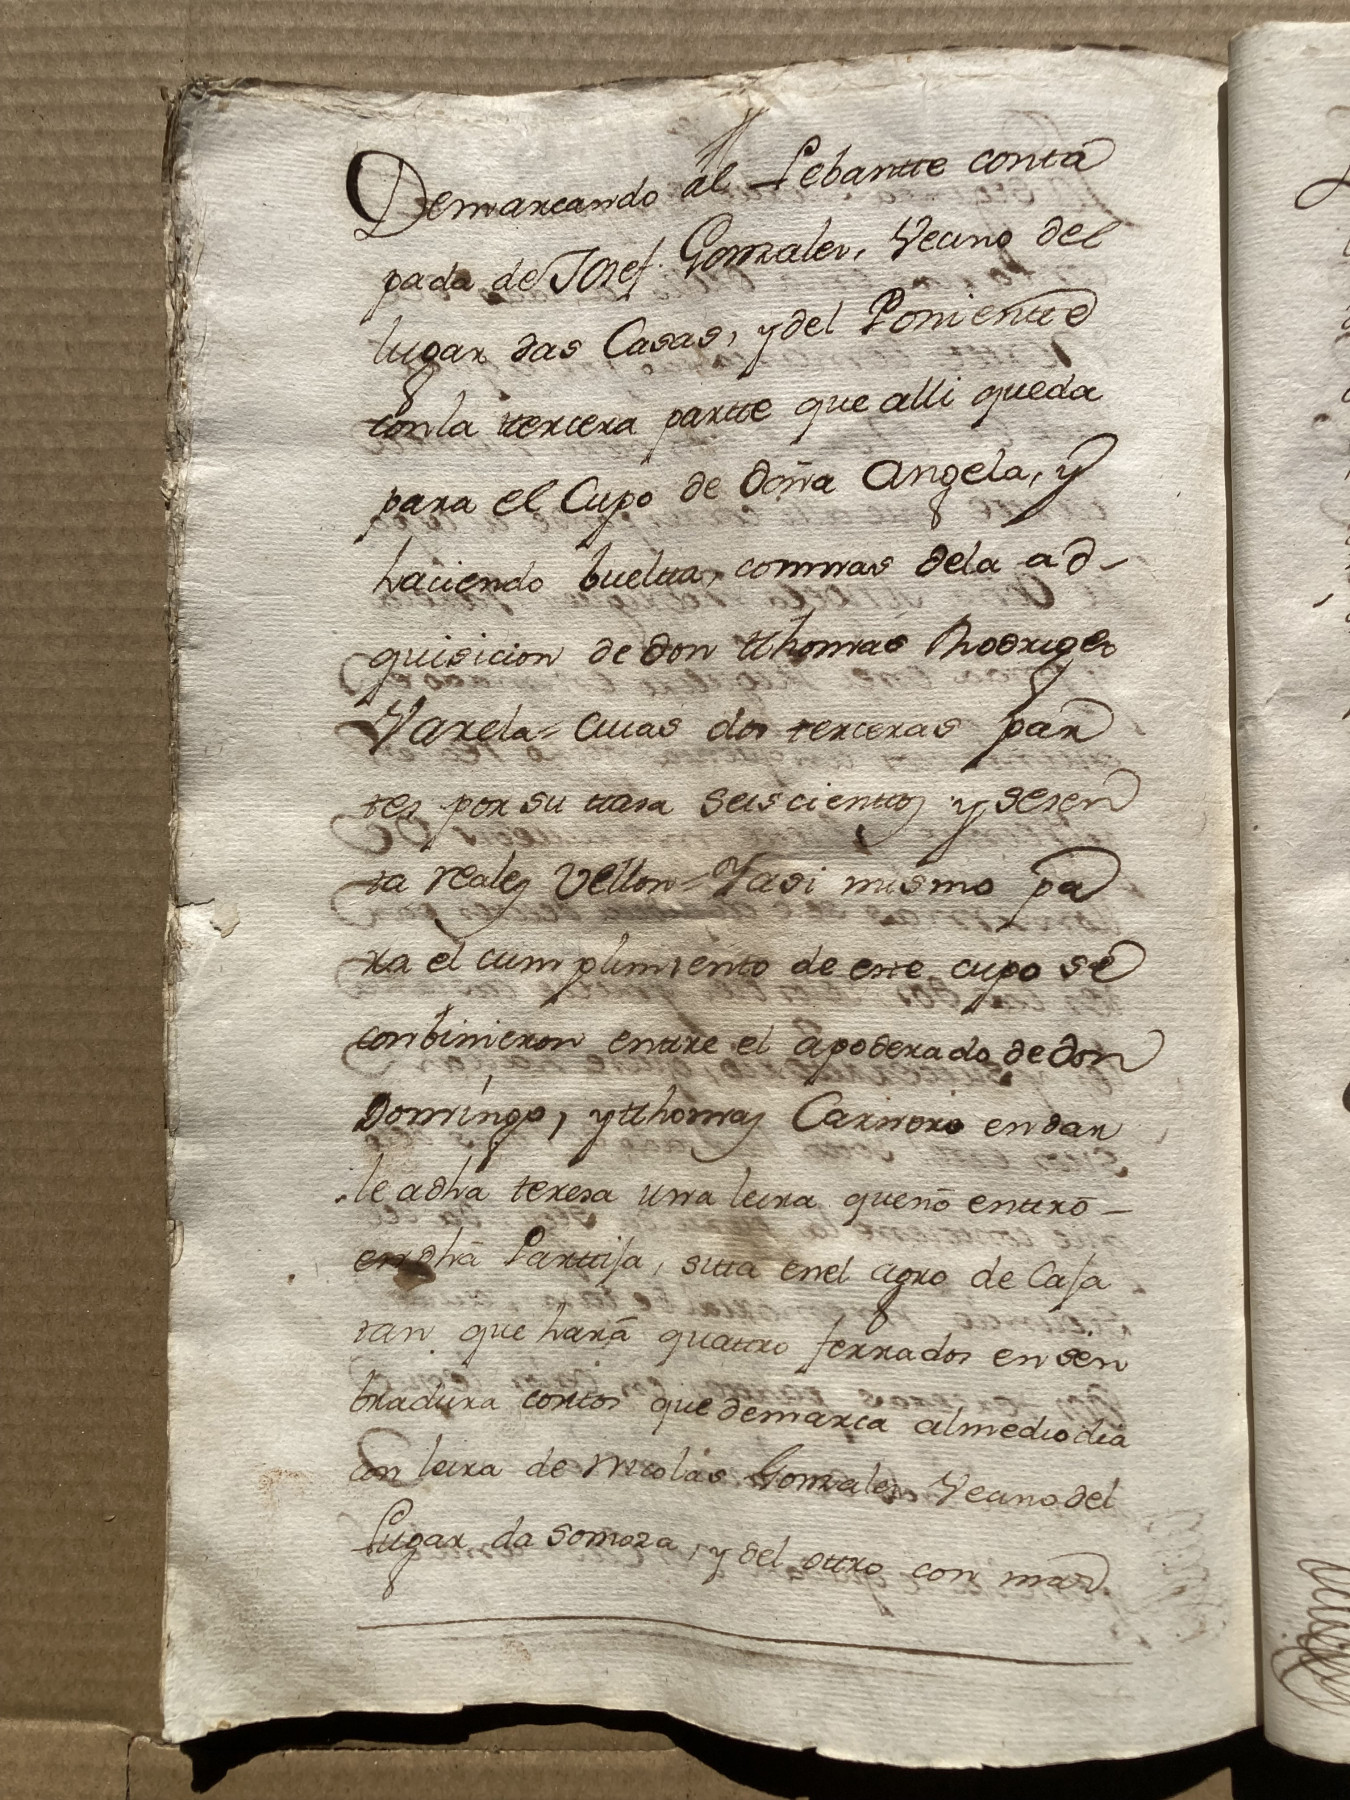 Demarcando al Lebantte conta
pada de Josef Gonzalez, Vecino del
lugar das Casas, y del Ponientte
con la tercera partte que alli queda
para el Cupo de doña Angela, y
haciendo buelta, con mas dela ad-
quisicion de don tthomas Rodrigez
Varela= cuias dos terceras par
tes por su tasa seis cienttos y sesen
ta reales Vellon= Y asi mismo pa
ra el cumplimiento de este cupo se
conbinieron enttre el Apoderado de don
Domingo, y tthomas Carnero en dar
le a dha teresa una leira que no enttro-
en dha Parttija, sitta en el agro de Casa
ran que hará quattro ferrados en sen
bradura conttos que demarca al mediodia
con leira de Nicolás Gonzalez Vecino del
Lugar da Somoza, y del ottro con mas